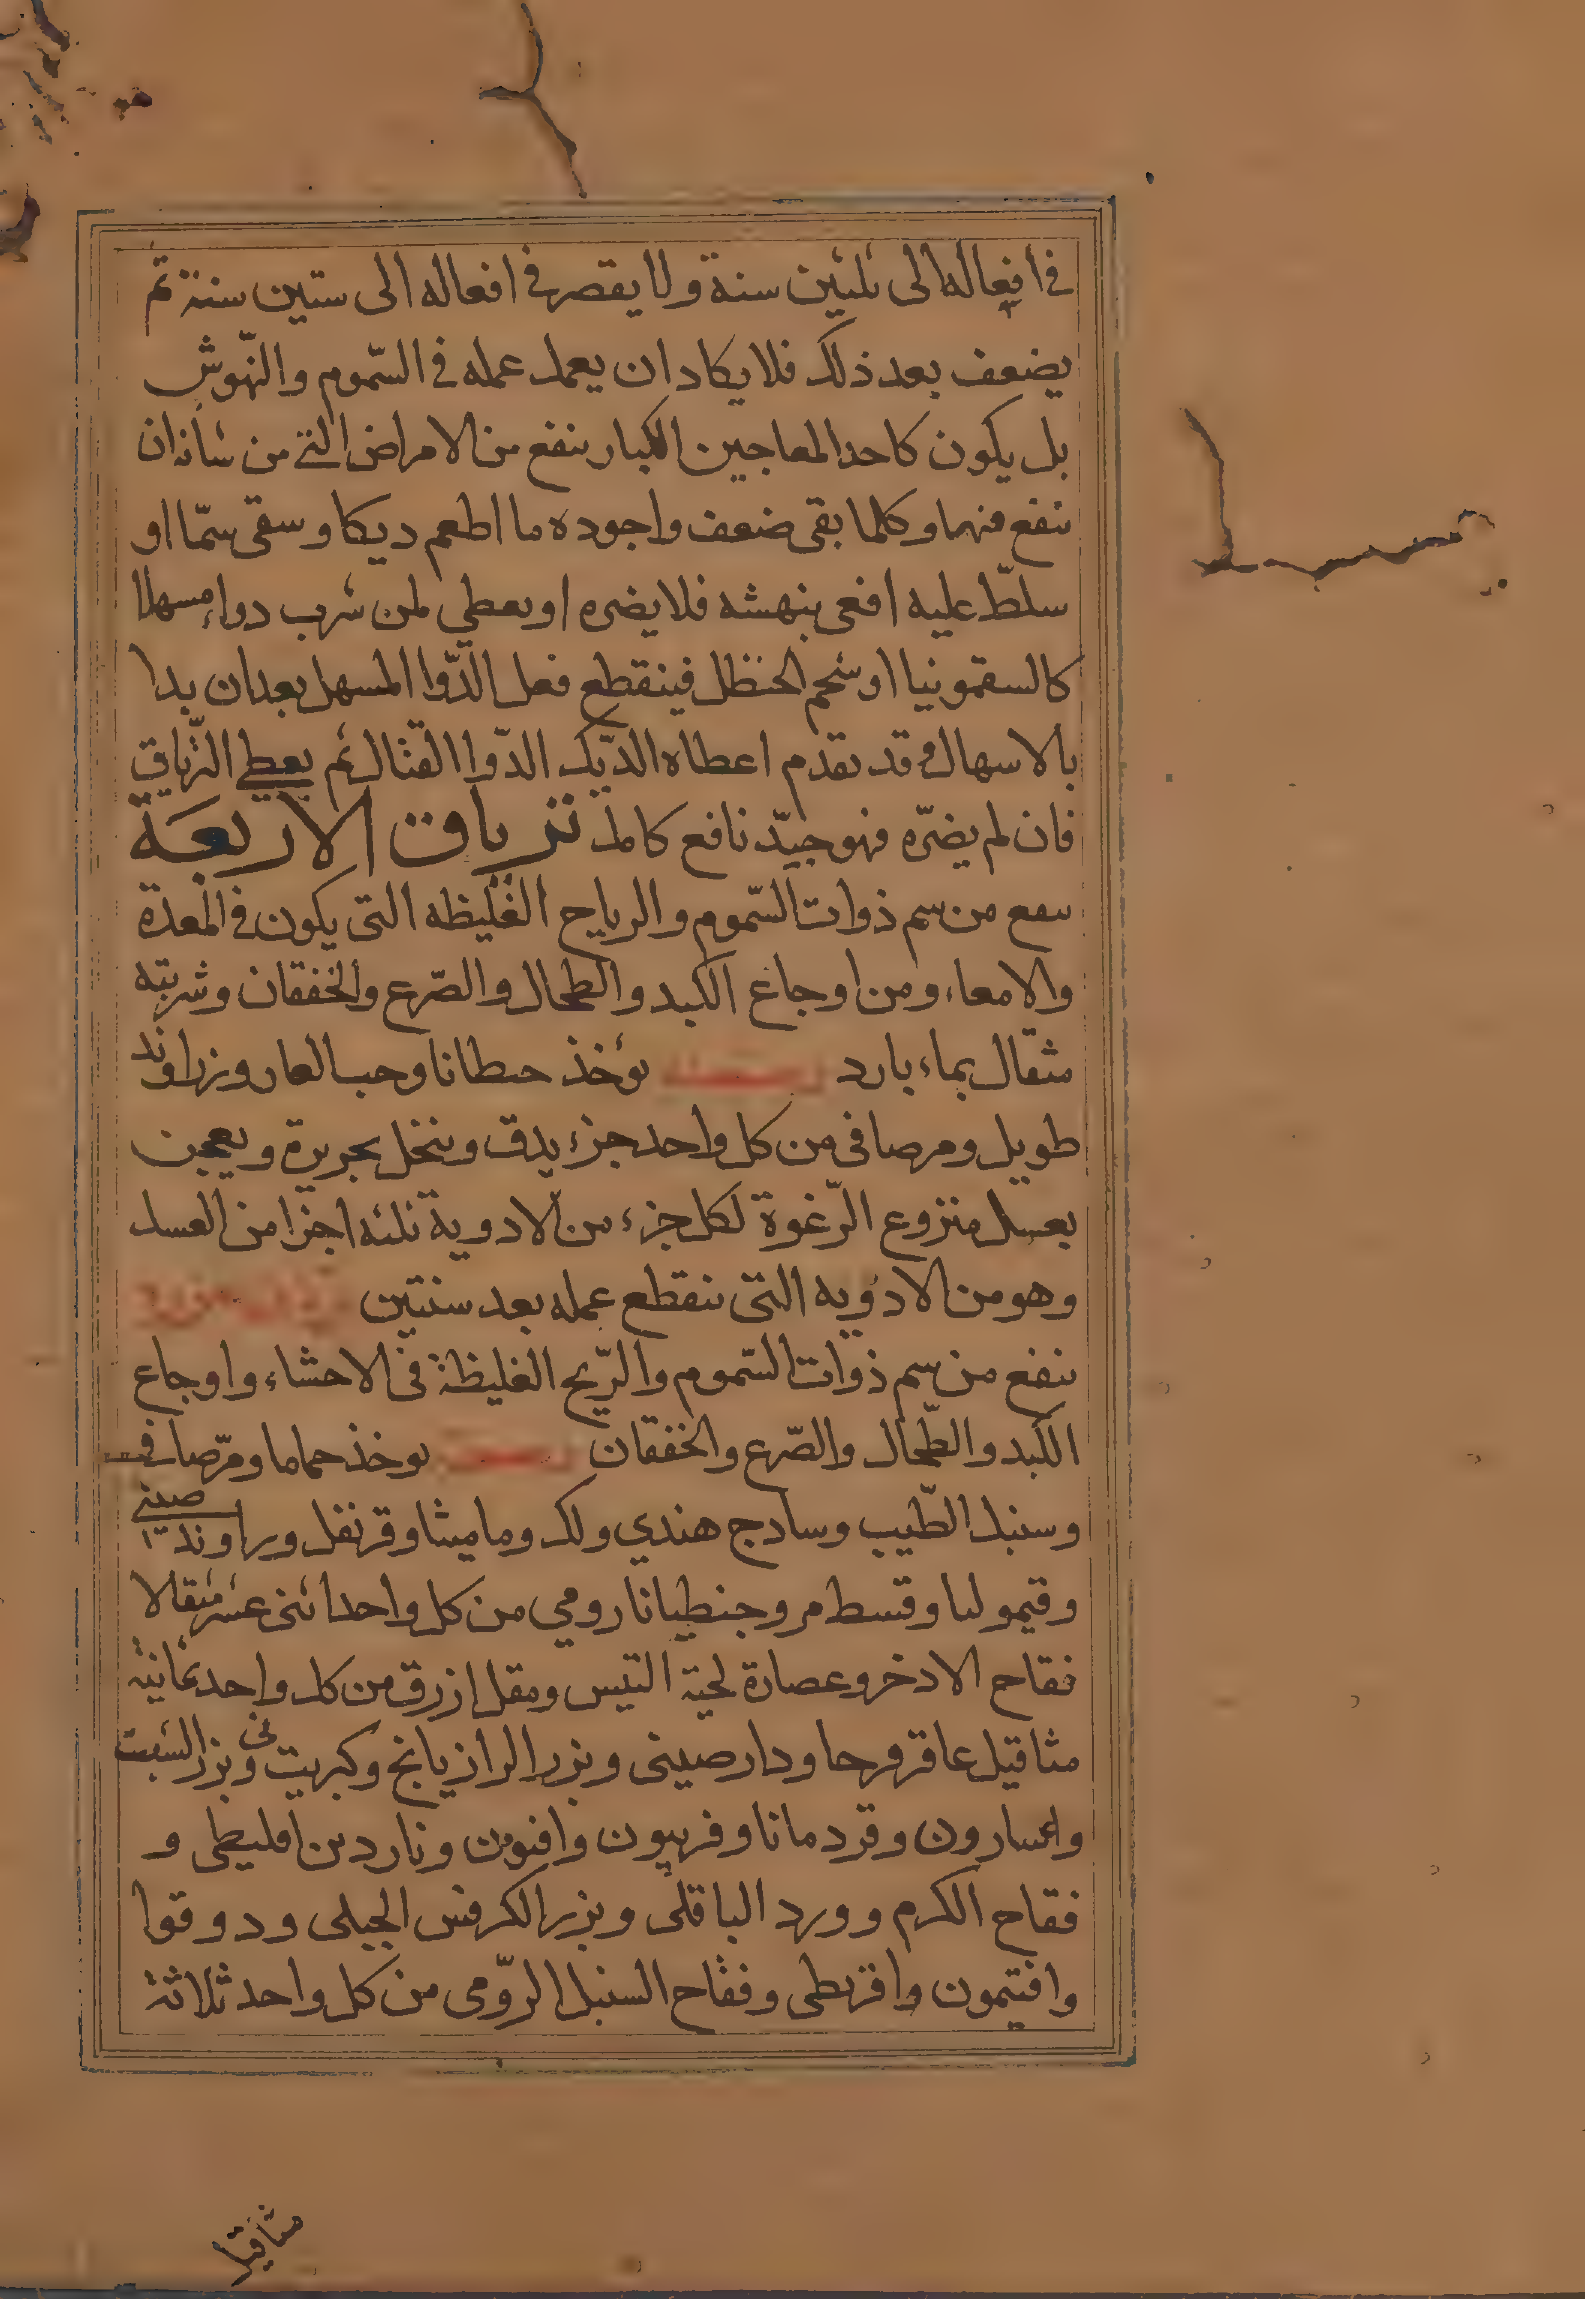 في افعاله الى ثلثين سنة ولا يقصر في افعاله الى ستين سنة ثم
يضعف بعد ذلك فلا يكاد ان يعمل عمله في السّموم والنّهوش
بل يكون كاحد المعاجين الكبار ينفع من الامراض التي من شأنه ان
ينفع منها وكلما بقى ضعف واجوده ما اطعم ديكا وسقى سمّا او
سلّط عليه افعى بنهشه فلا يضره او يعطي لمن شرب دواء مسهلا
كالسقمونيا او شحم الحنظل فينقطع فعل الدّوا المسهل بعد ان بدا
بالاسهال وقد تقدم اعطاه الدّيك الدّوا القتال ثم يعطي الترياق
فان لم يضرّه فهو جيّد نافع كامل ترياق الاربعة
ينفع من سم ذوات السّموم والرياح الغليظه التى يكون في المعدة
والامعاء ومن اوجاع الكبد والطحال والصّرع والخفقان وشربته
مثقال بماء بارد يؤخذ جنطانا وحب الغار وزراوند
طويل ومر صافي من كل واحد جزء يدق وينخل بحريرة ويعجن
بعسل منزوع الرّغوة لكل جزء من الادوية ثلثه اجزا من العسل
وهو من الادويه التى ينقطع عمله بعد سنتين
ينفع من سم ذوات السّموم والرّيح الغليظة في الاحشاء واوجاع
الكبد والطّحال والصّرع والخفقان يوخذ حماما ومرّ صافي
وسنبل الطّيب وسادج هندي ولك وماميثا وقرنفل وراوند صيني
وقيموليا وقسط مر وجنطيانا رومي من كل واحد اثنى عشر مثقالا
فقاح الادخر وعصارة لحية التيس ومقل ازرق من كل واحد ثمانية
مثاقيل عاقرقرحا ودارصينى وبزر الرازيانج وكبريت وبزر الشبت
واسارون وقردمانا وفربيون وافيون وناردين اقليطى و
فقاح الكرم وورد الباقلى وبزر الكرفس الجبلى ودوقوا
وافتيمون واقريطى وفقاح السنبل الرّومى من كل واحد ثلاثة
مثاقيل